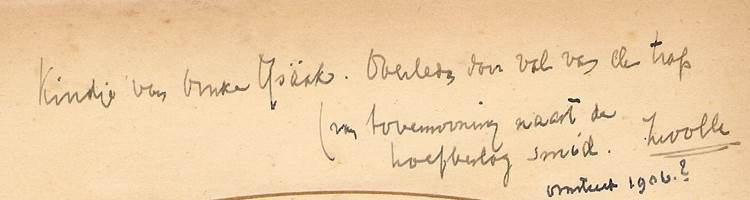 Kindje van Omke Ysäak. Overleden door val van de trap
(van bovenwoning naast de
hoefbeslag smid. Zwolle
omstreeks 1906.?